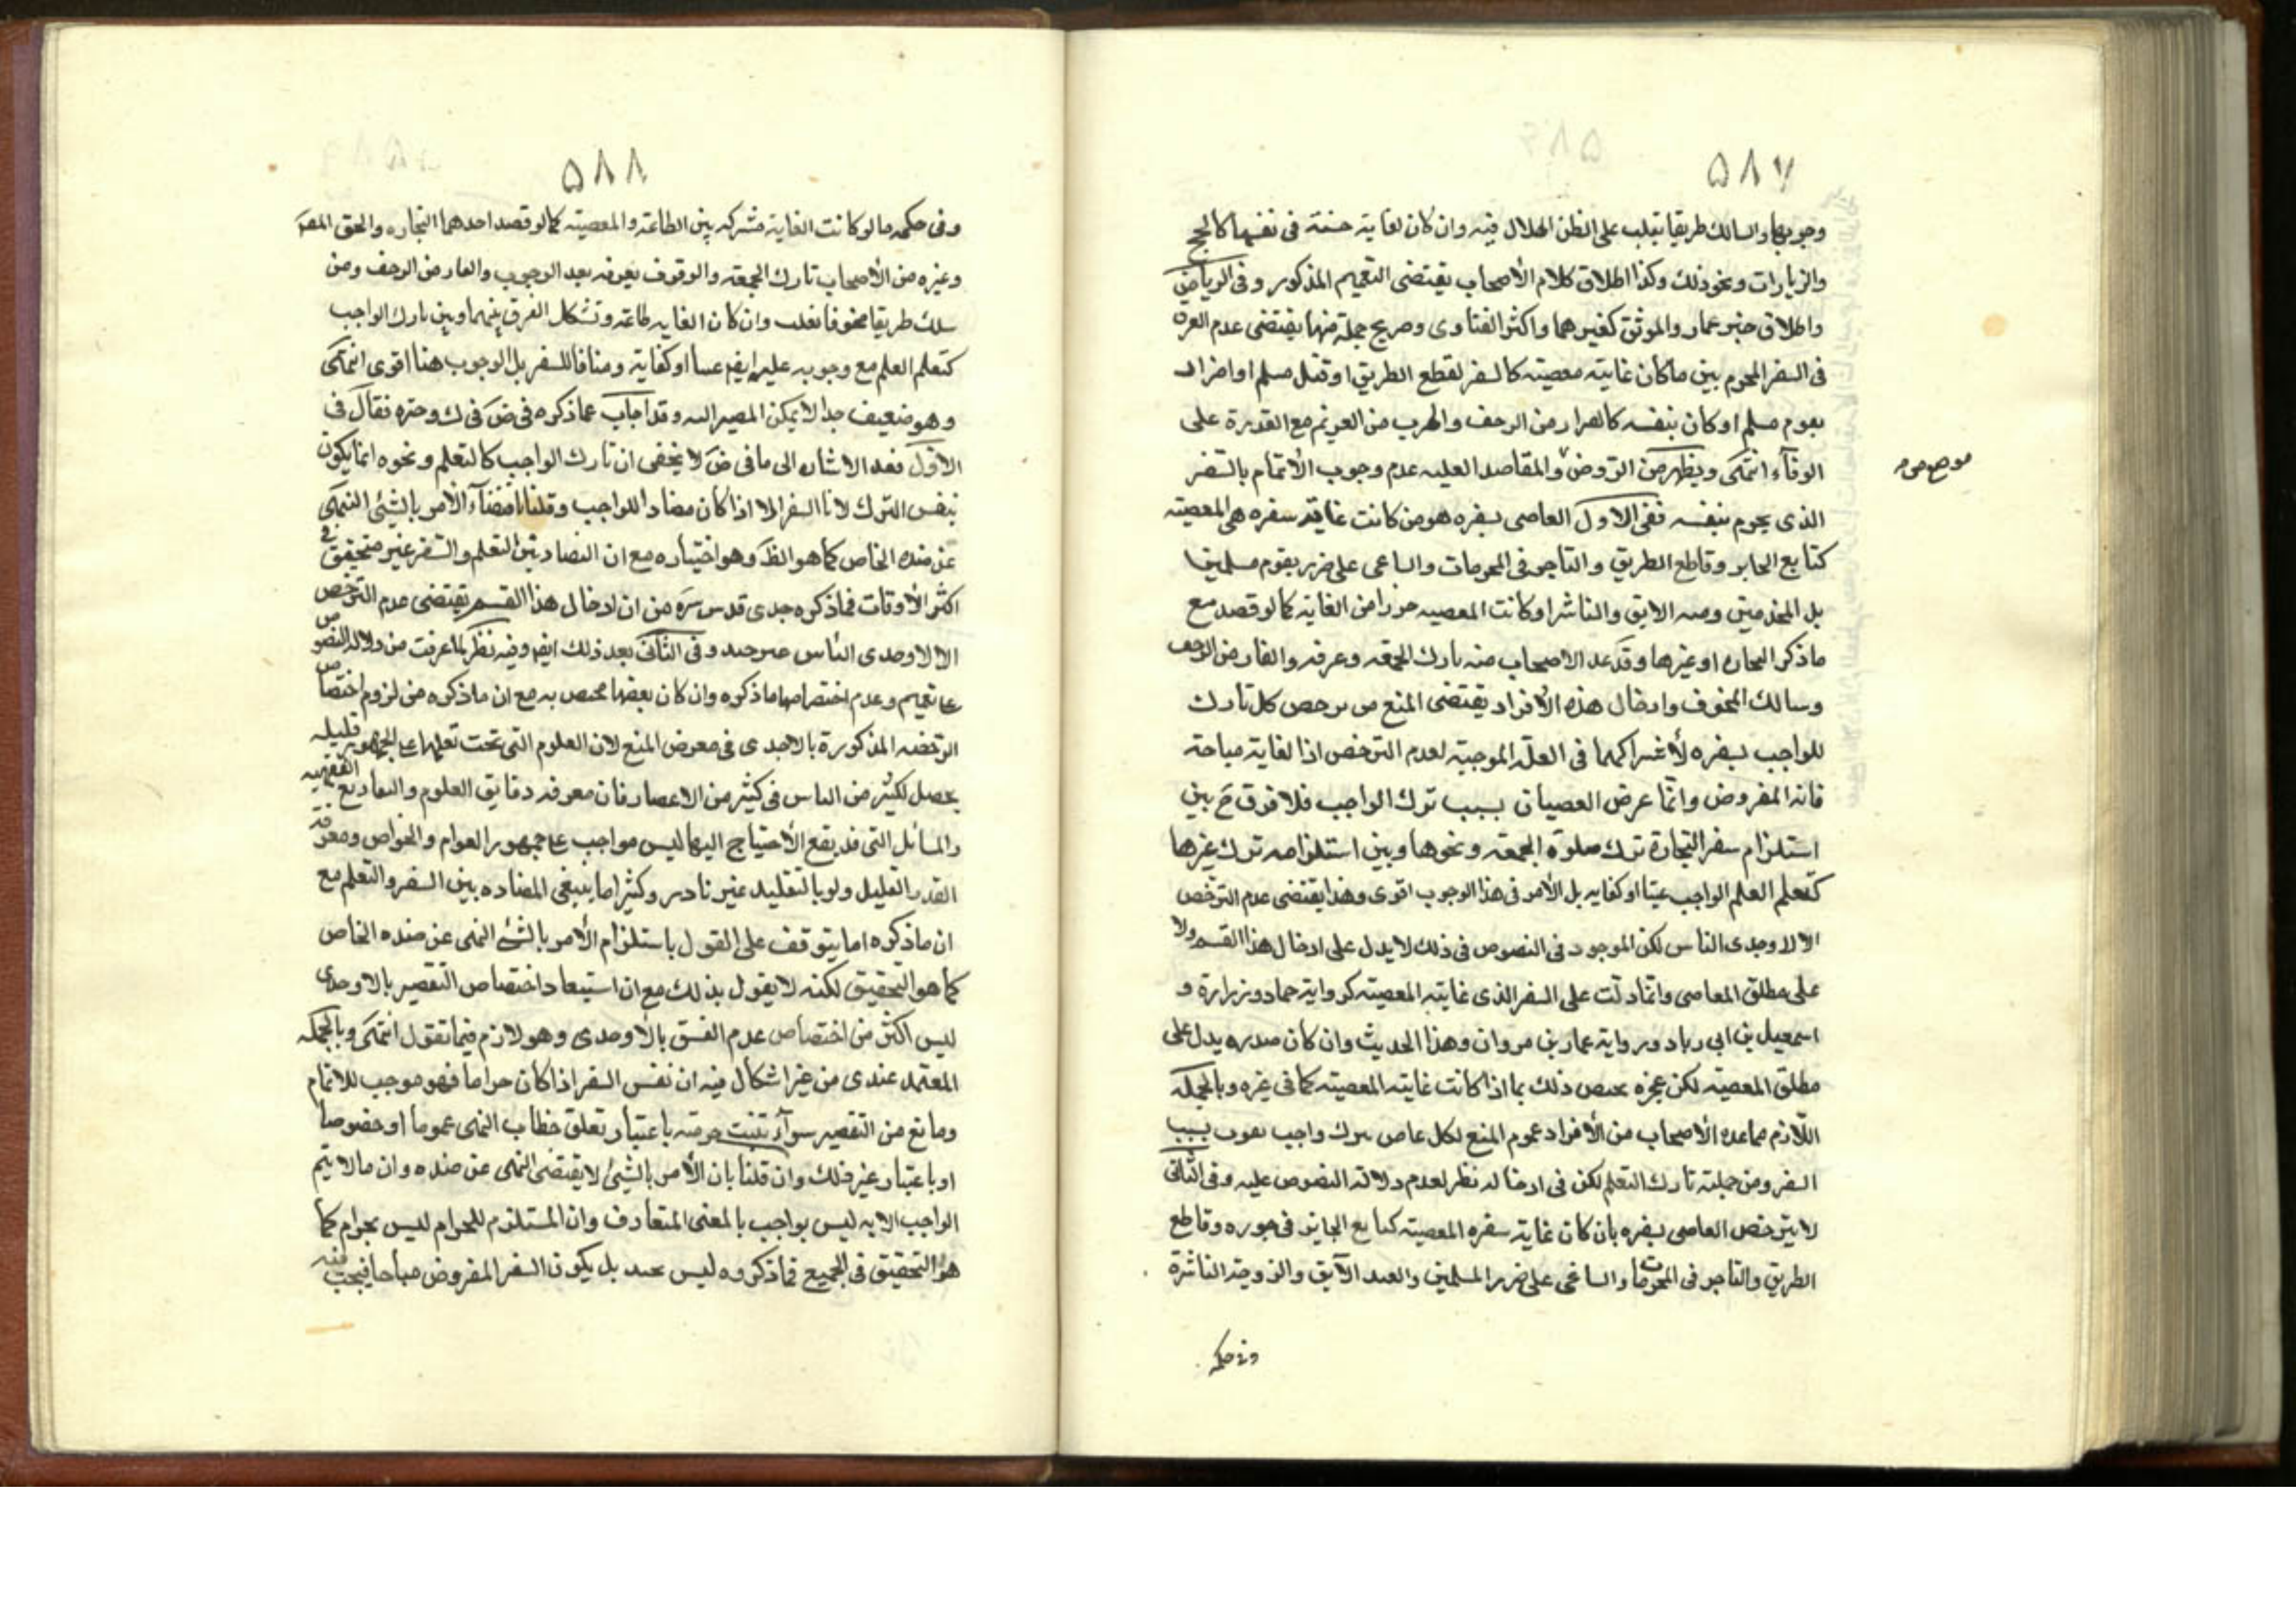 ٥٨٧
وجوبها والسالك طريقا يغلب على الظن الهلاك فيه وان كان لغاية حسنة فى نفسها كالحج
والزيارات ونحو ذلك وكذا اطلاق كلام الأصحاب يقتضى التعميم المذكور وفى الرياض
واطلاق خبر عمار والموثق كغيرهما واكثر الفتاوى وصريح جملة منها يقتضى عدم الفرق
فى السفر المحرم بين ما كان غايته معصيته كالسفر لقطع الطريق او قتل مسلم او اضرار
بقوم مسلم او كان بنفسه كالفرار من الزحف والهرب من الغريم مع القدرة على
الوفآء انتهى ويظهر من الروض والمقاصد العلية عدم وجوب الأتمام بالسفر
الذى يحرم بنفسه ففى الاول العاصى بسفره هو من كانت غاية سفره هى المعصية
كتابع الجاير وقاطع الطريق والتاجر فى المحرمات والساعى على ضرر بقوم مسلمين
ومنه الابق والناشز او كانت المعصيه جزءا من الغاية كما لو قصد مع
ما ذكر التجارة او غيرها وقد عد الاصحاب منه تارك الجمعه وعرفه والفار من الزحف
وسالك المخوف وادخال هذه الأفراد يقتضى المنع من ترخص كل تارك
للواجب بسفره لأشتراكهما فى العلة الموجبة لعدم الترخص اذ الغاية مباحة
فانه المفروض وانما عرض العصيان بسبب ترك الواجب فلا فرق ح بين
استلزام سفر التجارة ترك صلوة الجمعة ونحوها وبين استلزامه ترك غيرها
كتعلم العلم الواجب عينا او كفايه بل الأمر فى هذا الوجوب اقوى وهذا يقتضى عدم الترخص
الا لاوحدى الناس لكن الموجود فى النصوص فى ذلك لا يدل على ادخال هذا القسم ولا
على مطلق المعاصى وانما دلت على السفر الذى غايته المعصية كرواية حماد وزرارة و
اسمعيل بن ابى زياد ورواية عمار بن مروان وهذا الحديث وان كان صدره يدل على
مطلق المعصية لكن عجزه يختص ذلك بما اذا كانت غايته المعصية كما فى غيره وبالجملة
اللازم مما عده الأصحاب من الأفراد عموم المنع لكل عاص بترك واجب يفوت بسبب
السفر ومن جملته تارك التعلم لكن فى ادخاله نظر لعدم دلالة النصوص عليه وفى الثانى
لا يترخص العاصى بسفره بان كان غاية سفره المعصية كتابع الجاير فى جوره وقاطع
الطريق والتاجر فى المحرمات والساعى على ضرر المسلمين والعبد الآبق والزوجة الناشزة
وفى حكمه
٥٨٨
وفى حكمه ما لو كانت الغاية مشتركه بين الطاعة والمعصية كما لو قصد احدهما التجاره والحق
وغيره من الأصحاب تارك الجمعة والوقوف بعرفه بعد الوجوب والفار من الزحف ومن
سلك طريقا مخوفا وان كان الغايه طاعة وتشكل الفرق بينهما وبين تارك الواجب
كتعلم العلم مع وجوبه عليه ايض عينا او كفاية ومنافا للسفر بل الوجوب هنا اقوى انتهى
وهو ضعيف جدا لا يمكن المصير اليه وقد اجاب عما ذكره فى ض فى ك وحتره فقال فى
الاول بعد الاشارة الى ما فى ض لا يخفى ان تارك الواجب كالتعلم ونحوه انما يكون
بنفس الترك لا بالسفر الا اذا كان مضادا للواجب وقلنا باقتضآء الأمر بالشئ النهى
عن ضده الخاص كما هو الظ وهو اختياره مع ان التضاد بين التعلم والسفر غير متحقق فى
اكثر الأوقات فما ذكره جدى قدس سره من ان ادخال هذا القسم يقتضى عدم الترخص
الا لاوحدى الناس غير جيد وفى الثانى بعد ذلك ايض وفيه نظر لما عرفت من دلالة النصوص
على تعميم وعدم اختصاصها ما ذكره وان كان بعضها مختص به مع ان ما ذكره من لزوم اختصاص
الرخصه المذكورة بالاوحدى فى معرض المنع لان العلوم التى تحت تعلمها على الجمهور قليله
يحصل لكثير من الناس فى كثير من الاعصار فان معرفه دقايق العلوم والتفاريع الفقهيه
والمسائل التى قد يقع الأحتياج اليها ليس بواجب على جمهور العوام والخواص ومعرفة
القدر القليل ولو بالتقليد غير نادر وكثيرا ما ينبغى المضاده بين السفر والتعلم مع
ان ما ذكره اما يتوقف على القول باستلزام الأمر بالشئ النهى عن ضده الخاص
كما هو التحقيق لكنه لا يقول بذلك مع ان استبعاد اختصاص التقصير بالاوحدى
ليس اكثر من اختصاص عدم الفسق بالاوحدى وهو لازم فيما تقول انتهى وبالجمله
المعتمد عندى من غير اشكال فيه ان نفس السفر اذا كان حراما فهو موجب للاتمام
ومانع من التقصير سوآء ثبتت حرمته باعتبار تعلق خطاب النهى عموما او خصوصا
او باعتبار غير ذلك وان قلنا بان الأمر بالشئ لا يقتضى النهى عن ضده وان ما لا يتم
الواجب الا به ليس بواجب بالمعنى المتعارف وان المستلزم للحرام ليس بحرام كما
هو التحقيق فى الجميع فما ذكروه ليس بجيد بل يكون السفر المفروض مباحا فيجب فيه